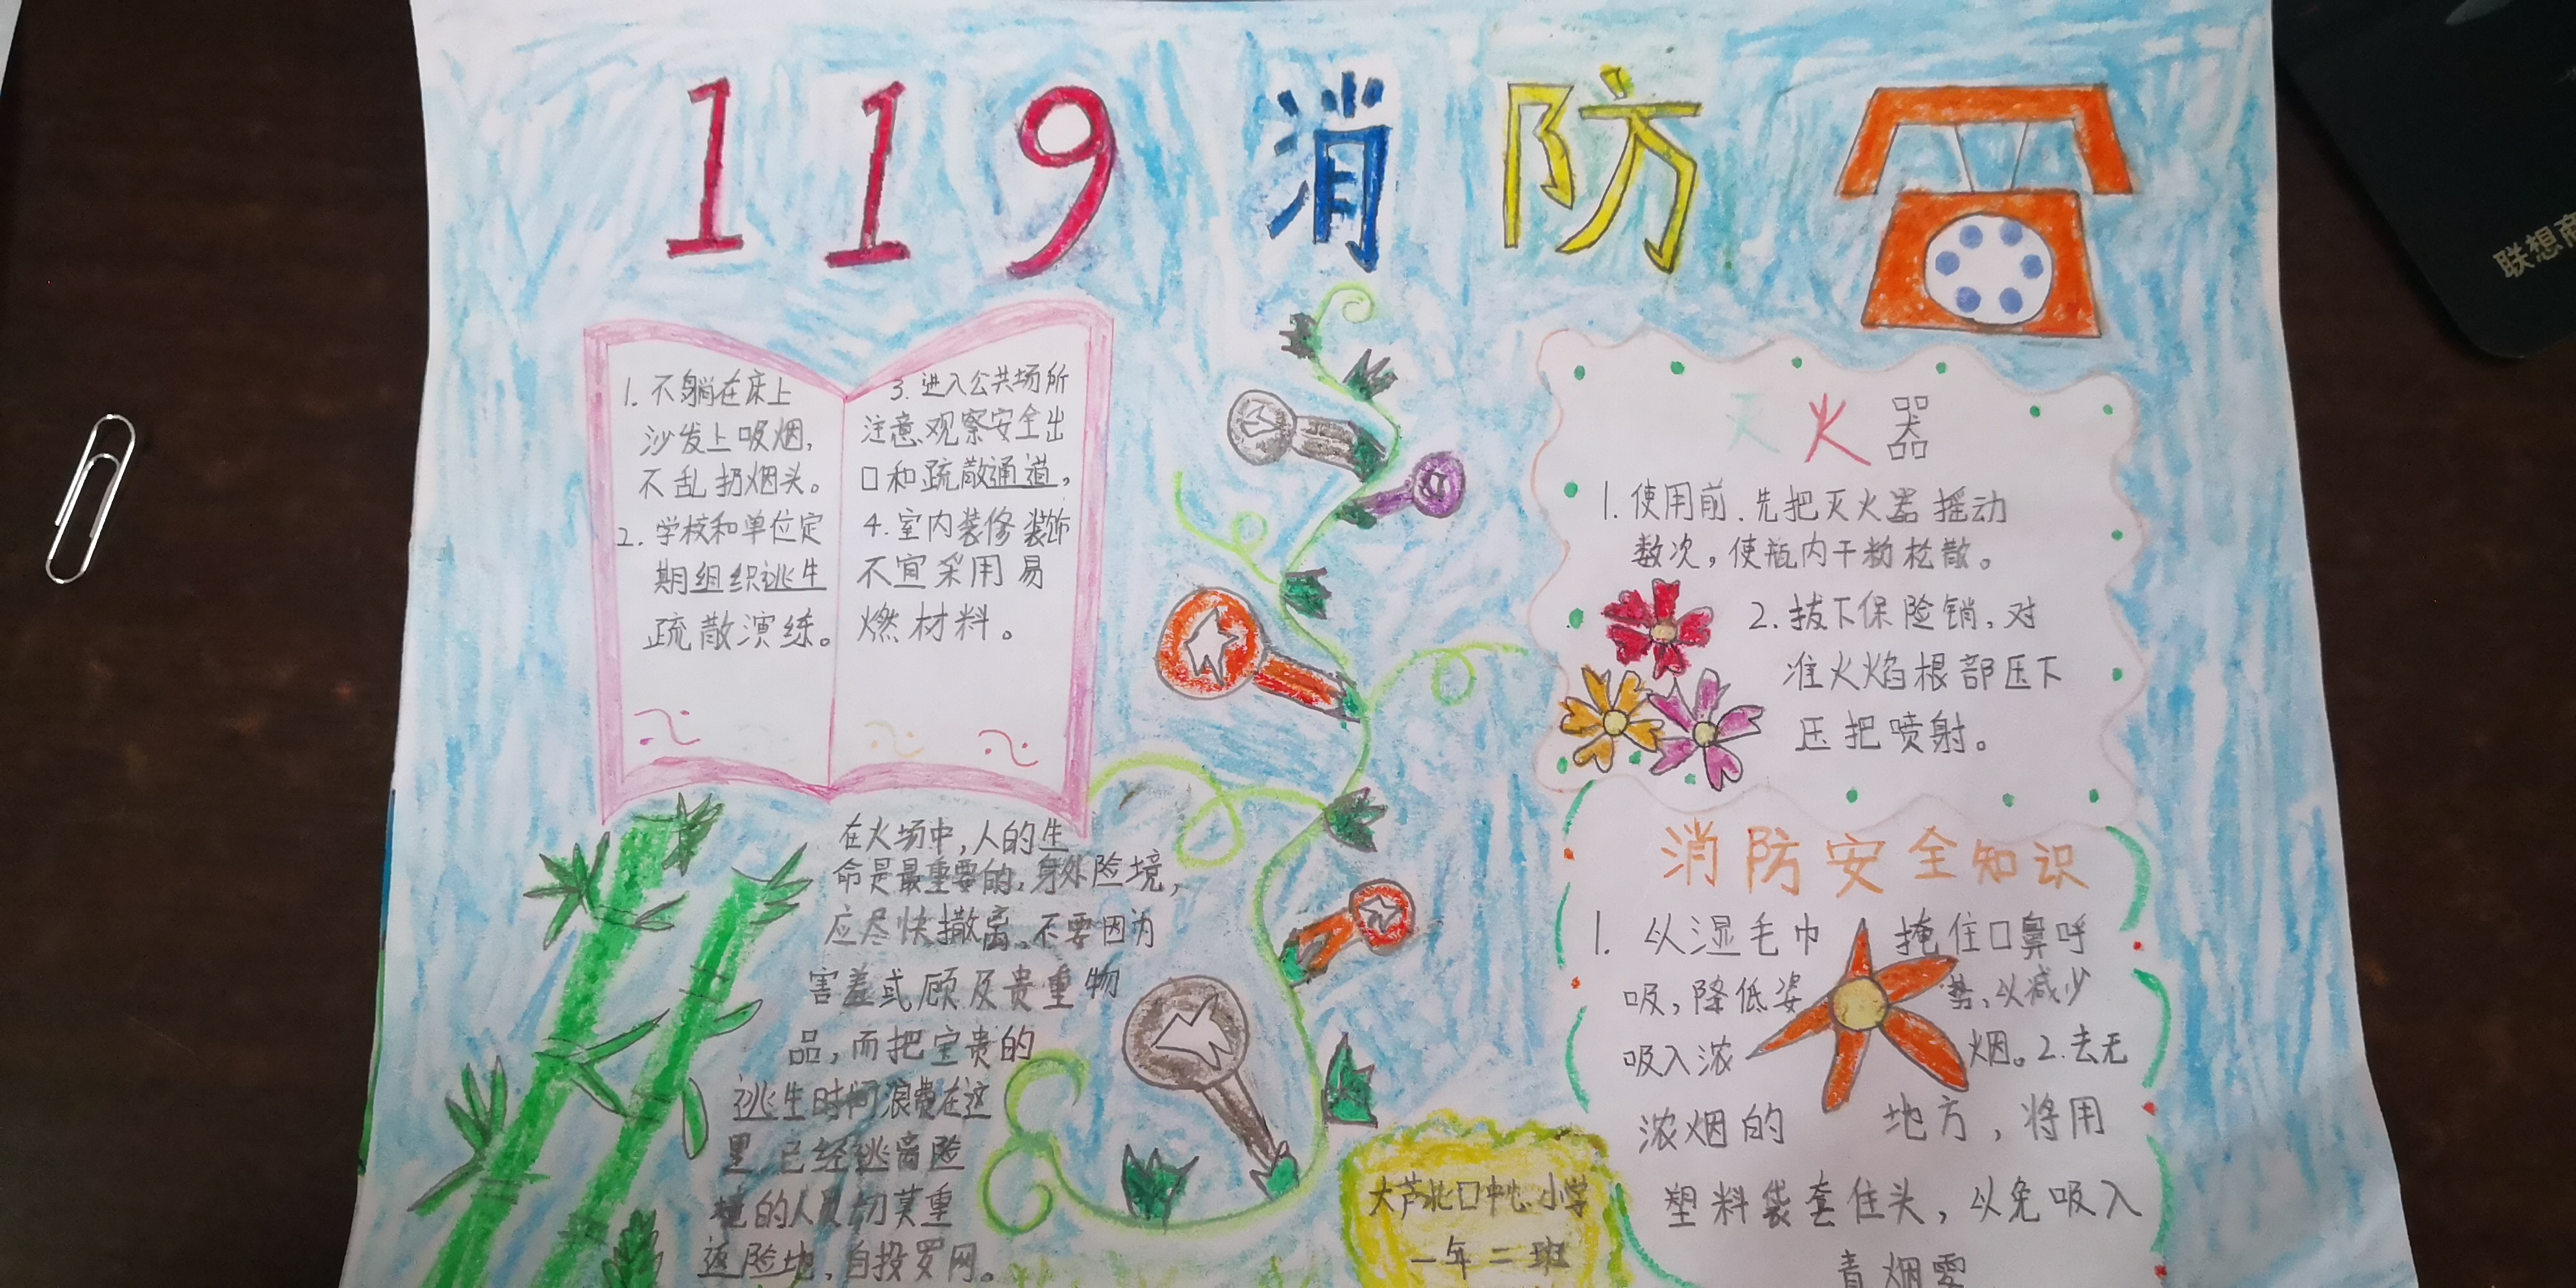 119 消防
1. 不躺在床上
沙发上吸烟,
不乱扔烟头。
2. 学校和单位定
期组织逃生
疏散演练。
3. 进入公共场所
注意、观察安全出
口和疏散通道,
4. 室内装修装饰
不宜采用易
燃材料。
灭火器
1. 使用前.先把灭火器摇动
数次,使瓶内干粉松散。
2. 拔下保险销,对
准火焰根部压下
压把喷射。
在火场中,人的生
命是最重要的,身外险境,
应尽快撤离,不要因为
害羞或顾及贵重物
品,而把宝贵的
逃生时间浪费在这
里.已经逃离险
境的人员切莫重
返险地,自投罗网。
消防安全知识
1. 从湿毛巾掩住口鼻呼
吸,降低姿势,以减少
吸入浓烟。2.去无
浓烟的地方,将用
塑料袋套住头,以免吸入
大芦北口中心小学
一年二班
联想商